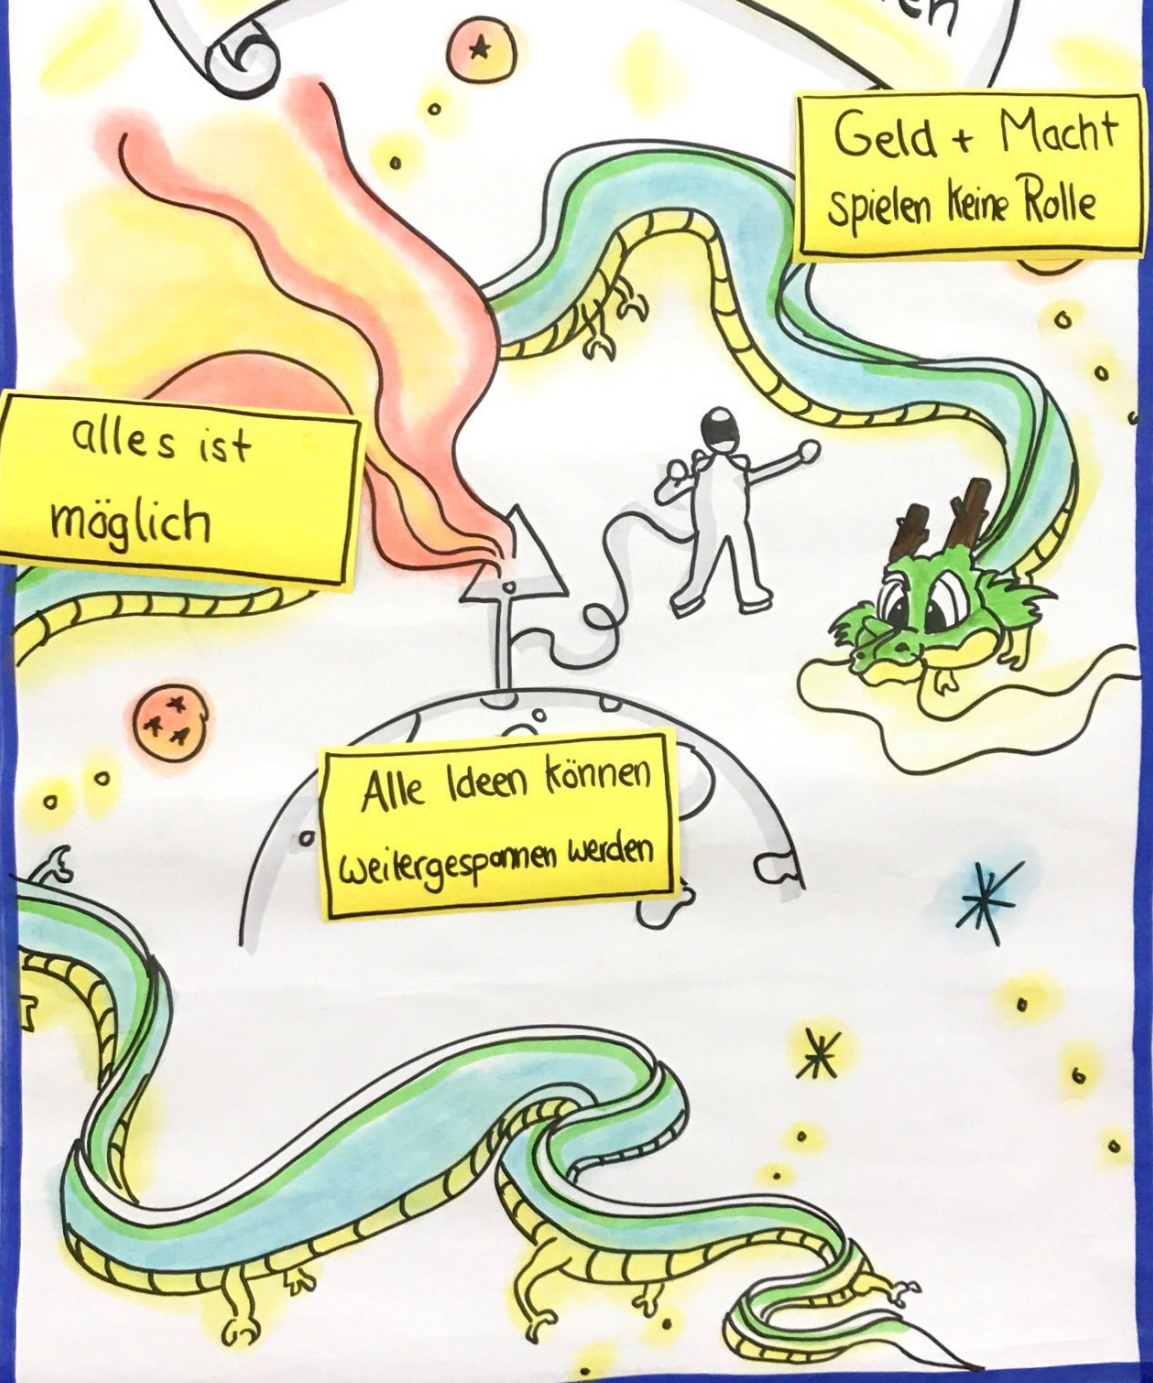 Geld + Macht
spielen keine Rolle
alles ist
möglich
Alle Ideen können
weitergesponnen werden